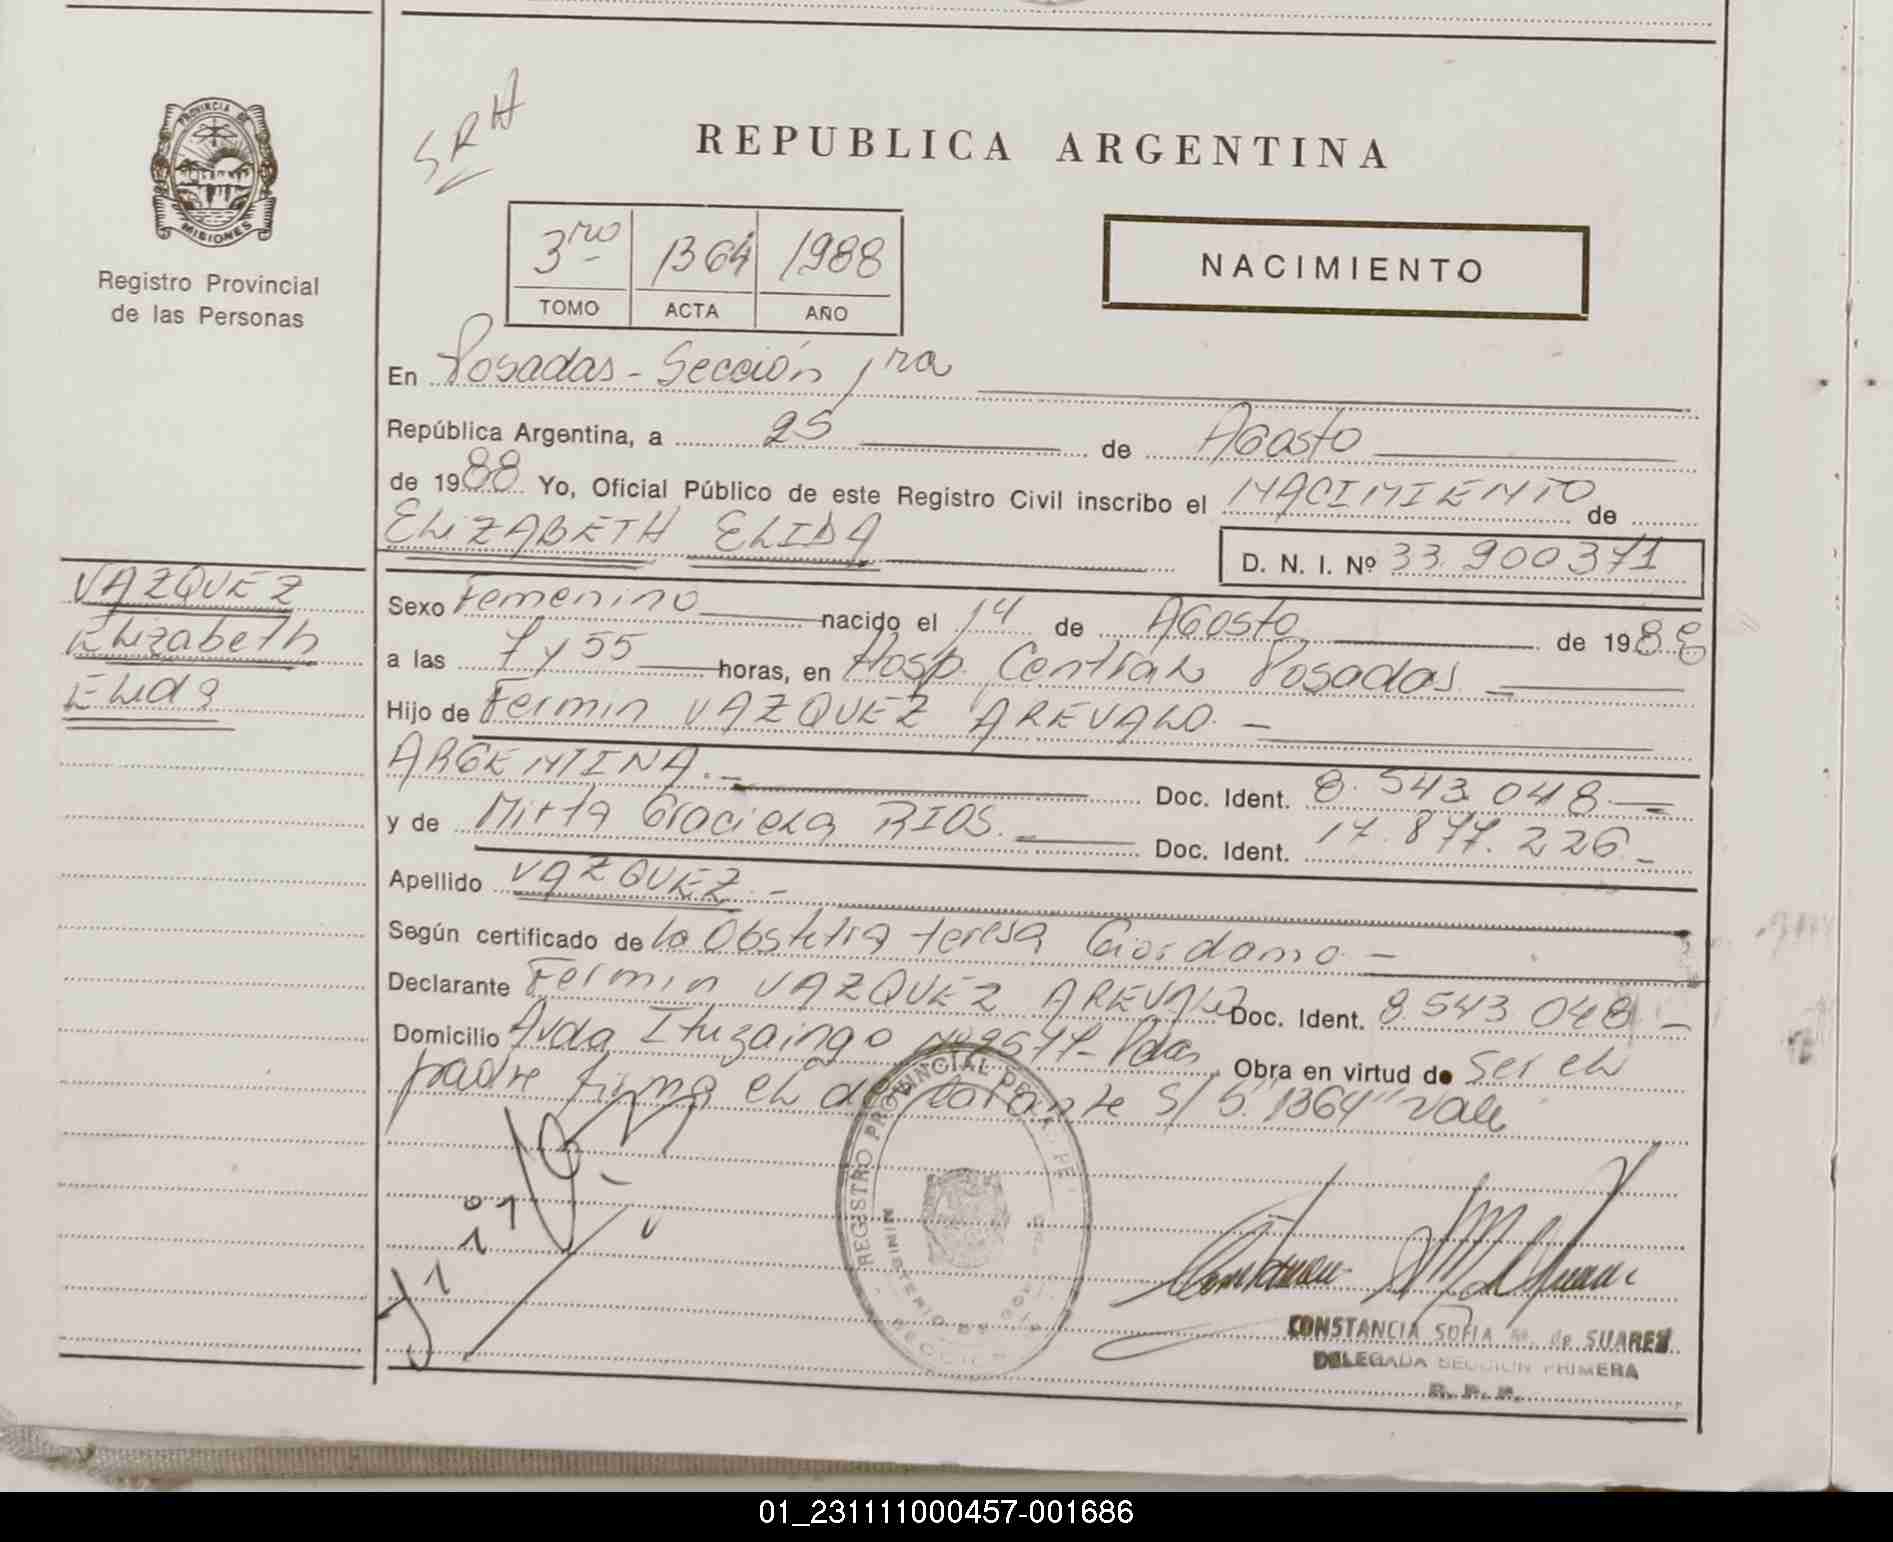 PROVINCIA DE
MISIONES
Registro Provincial
de las Personas
SRH
REPUBLICA ARGENTINA
3ro 1364 1988
TOMO ACTA AÑO
NACIMIENTO
En Posadas - Sección 1ra
República Argentina, a 25 de Agosto
de 1988 Yo, Oficial Público de este Registro Civil inscribo el NACIMIENTO de
ELIZABETH ELIDA D. N. I. Nº 33.900371
VAZQUEZ
Elizabeth
Elida
Sexo Femenino nacido el 14 de Agosto de 1988
a las 7 y 55 horas, en Hosp. Central Posadas
Hijo de Fermin VAZQUEZ AREVALO. -
ARGENTINA. - Doc. Ident. 8.543.048 -
y de Mirta Graciela RIOS. - Doc. Ident. 17.877.226 -
Apellido VAZQUEZ. -
Según certificado de la Obstetra Teresa Giordano -
Declarante Fermin VAZQUEZ AREVALO Doc. Ident. 8.543.048 -
Domicilio Avda Ituzaingo Nº 2577 - Pdas Obra en virtud de ser el
padre firma el declarante S/S "1364" Vale
REGISTRO PROVINCIAL DE LA PE
MINISTERIO DE GO
CONSTANCIA SOFIA M. de SUAREZ
DELEGADA SECCION PRIMERA
R. P. P.
01_231111000457-001686